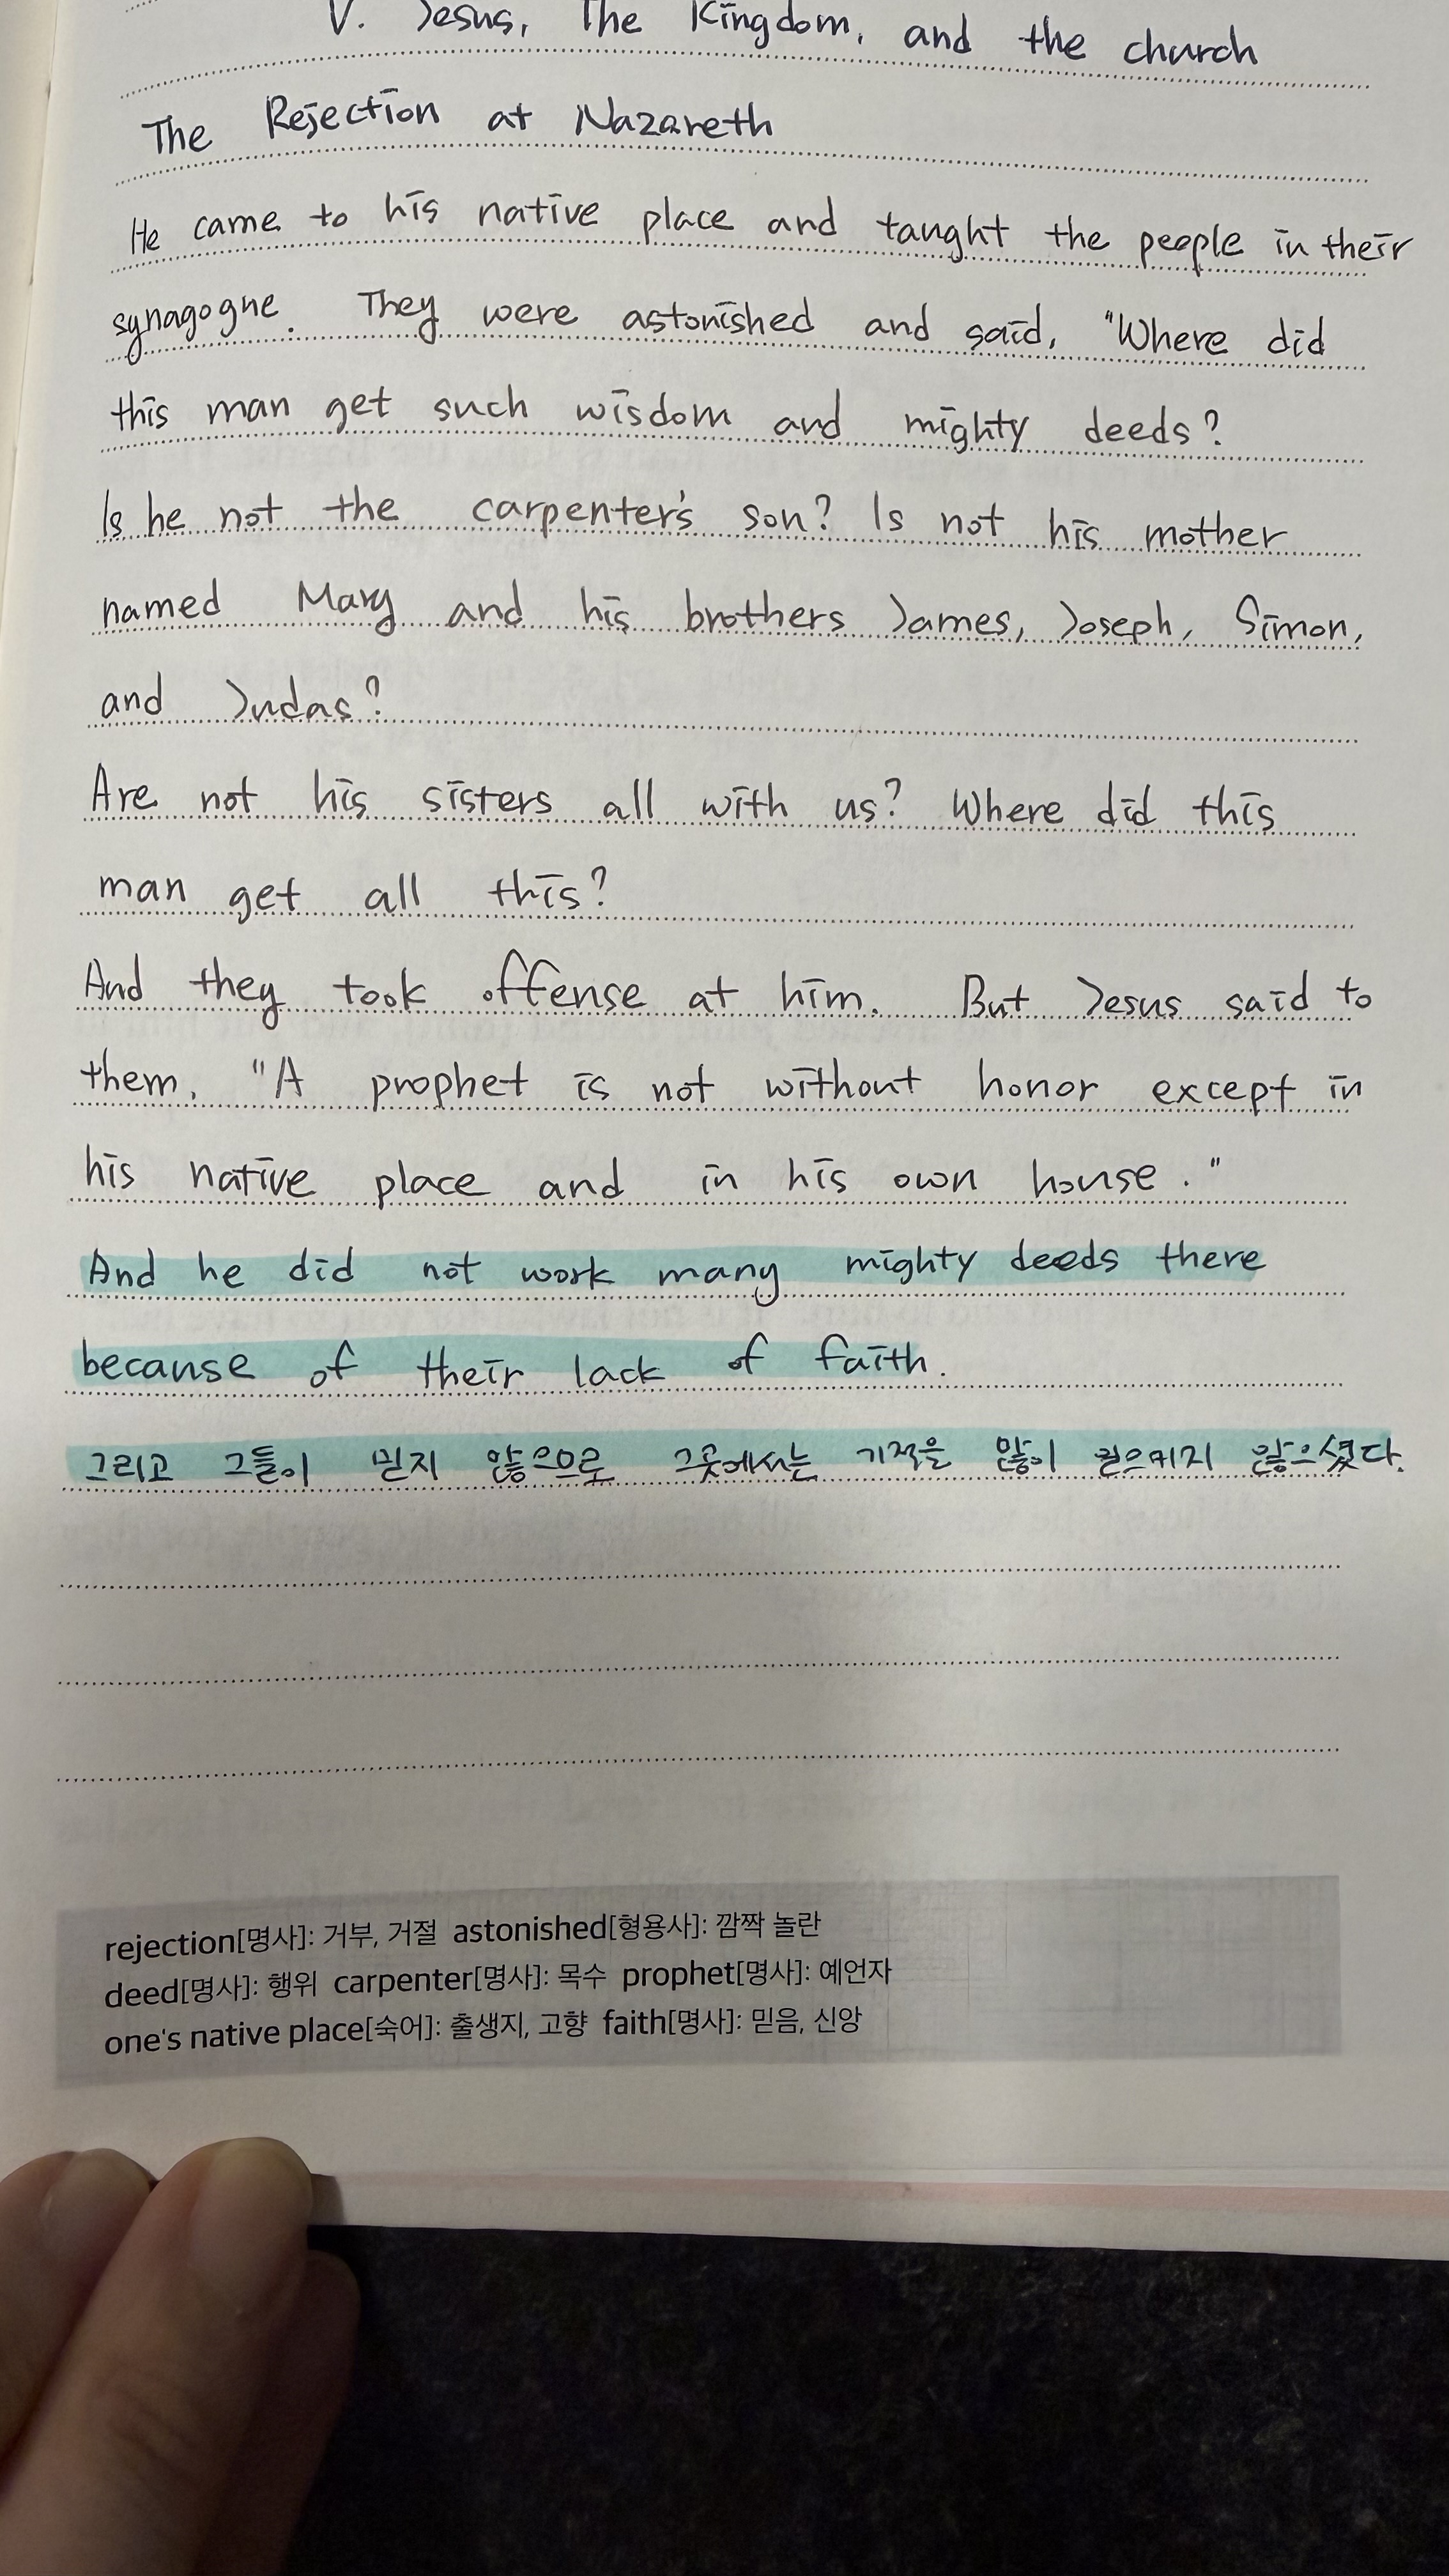 V. Jesus, The Kingdom, and the church
The Rejection at Nazareth
He came to his native place and taught the people in their
synagogue. They were astonished and said, "Where did
this man get such wisdom and mighty deeds?
Is he not the carpenter's son? Is not his mother
named Mary and his brothers James, Joseph, Simon,
and Judas?
Are not his sisters all with us? Where did this
man get all this?
And they took offense at him. But Jesus said to
them, "A prophet is not without honor except in
his native place and in his own house."
And he did not work many mighty deeds there
because of their lack of faith.
그리고 그들이 믿지 않으므로 그곳에서는 기적을 많이 일으키지 않으셨다.
rejection[명사]: 거부, 거절 astonished[형용사]: 깜짝 놀란
deed[명사]: 행위 carpenter[명사]: 목수 prophet[명사]: 예언자
one's native place[숙어]: 출생지, 고향 faith[명사]: 믿음, 신앙